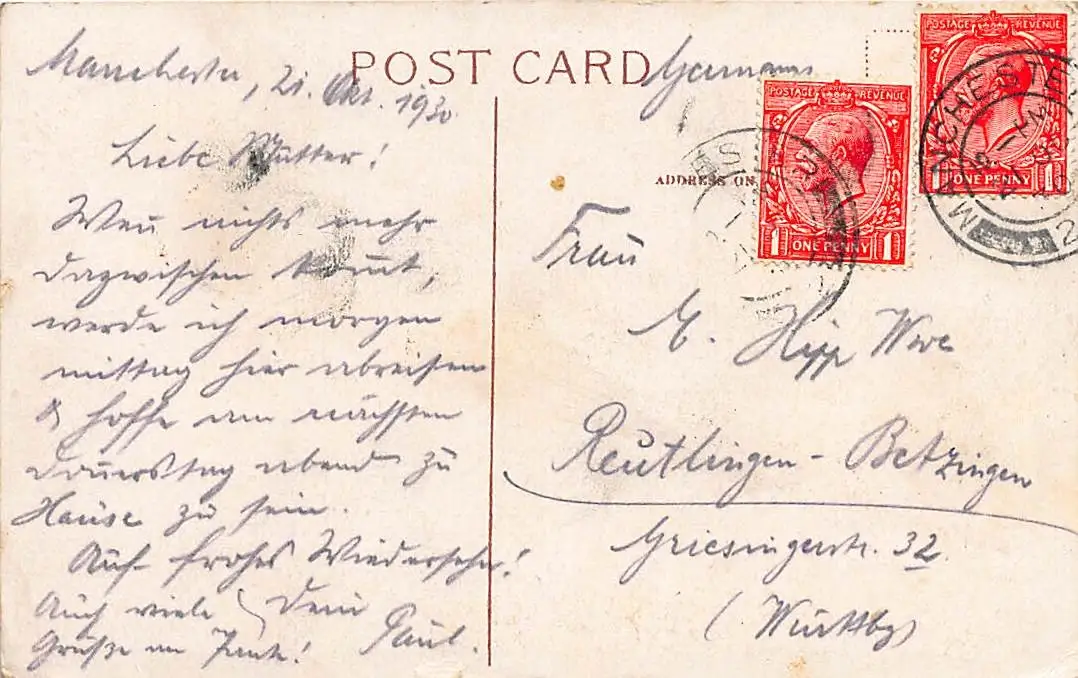 POST CARD
Manchester, 21. Okt. 1930
Liebe Mutter!
Wenn nichts mehr
dazwischen kommt,
werde ich morgen
mittag hier abreisen
& hoffe am nächsten
Donnerstag abend zu
Hause zu sein.
Auf frohes Wiedersehn!
Auch viele
Grüße an Tante!
Dein
Paul.
Germany
ADDRESS ON
Frau
Hipp Wwe
Reutlingen - Betzingen
Griesingerstr. 32
(Württbg)
POSTAGE REVENUE
1 ONE PENNY 1
POSTAGE REVENUE
1 ONE PENNY 1
MANCHESTER